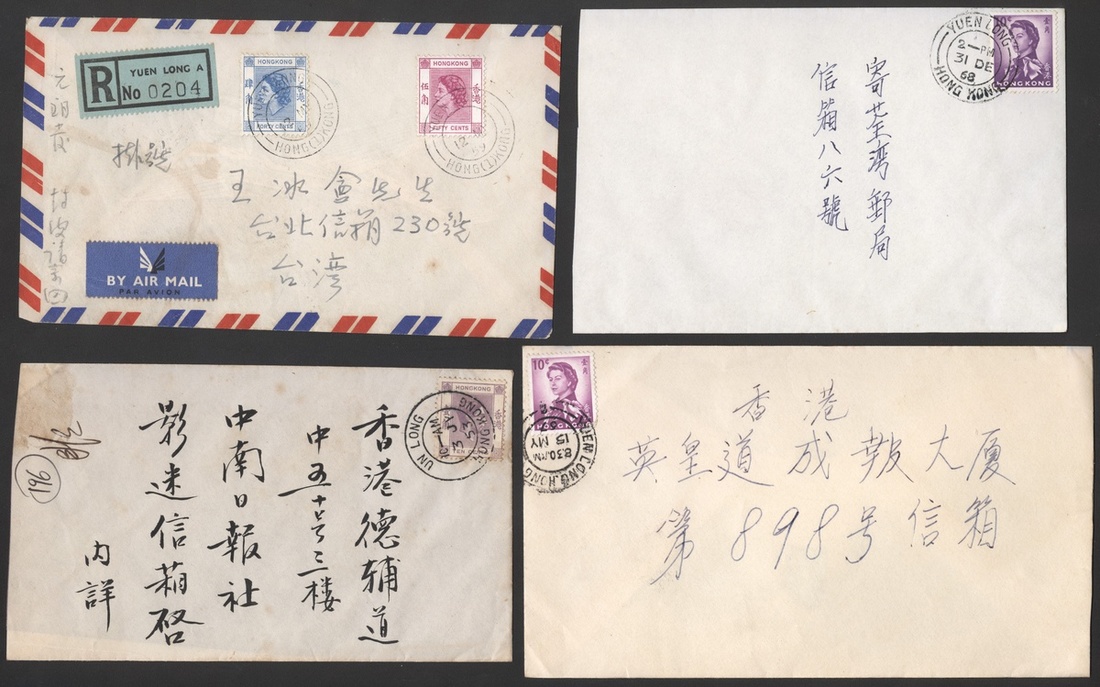 R
YUEN LONG A
No 0204
HONGKONG
肆角
香港
FORTY CENTS
HONGKONG
伍角
香港
FIFTY CENTS
HONG(1)KONG
HONG(1)KONG
掛號
王冰會先生
台北信箱230號
台湾
BY AIR MAIL
PAR AVION
元朗
10c
壹角
HONG KONG
YUEN LONG
2-PM
31 DE
68
HONG KONG
寄荃湾郵局
信箱八六號
HONGKONG
香港
TEN CENTS
UN LONG
AM
53
HONG KONG
香港德辅道
中五十号三楼
中南日報社
影迷信箱啓
内詳
196
10c
壹角
HONG KONG
YUEN LONG, HONG
8.30AM
15 MY
香港
英皇道成報大厦
第898号信箱